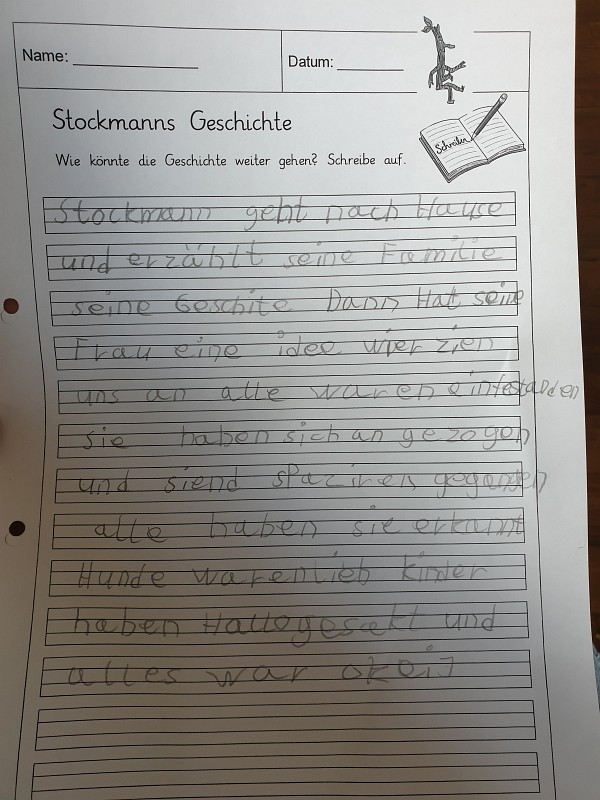 Name:
Datum:
Stockmanns Geschichte
Schreiben
Wie könnte die Geschichte weiter gehen? Schreibe auf.
Stockmann geht nach Hause
und erzählt seine Familie
seine Geschite Dann Hat seine
Frau eine idee wier zien
uns an alle waren einfestanden
sie haben sich an gezogen
und siend spaziren gegangen
alle haben sie erkannt
Hunde waren lieb kinder
haben Hallo gesakt und
alles war okeij